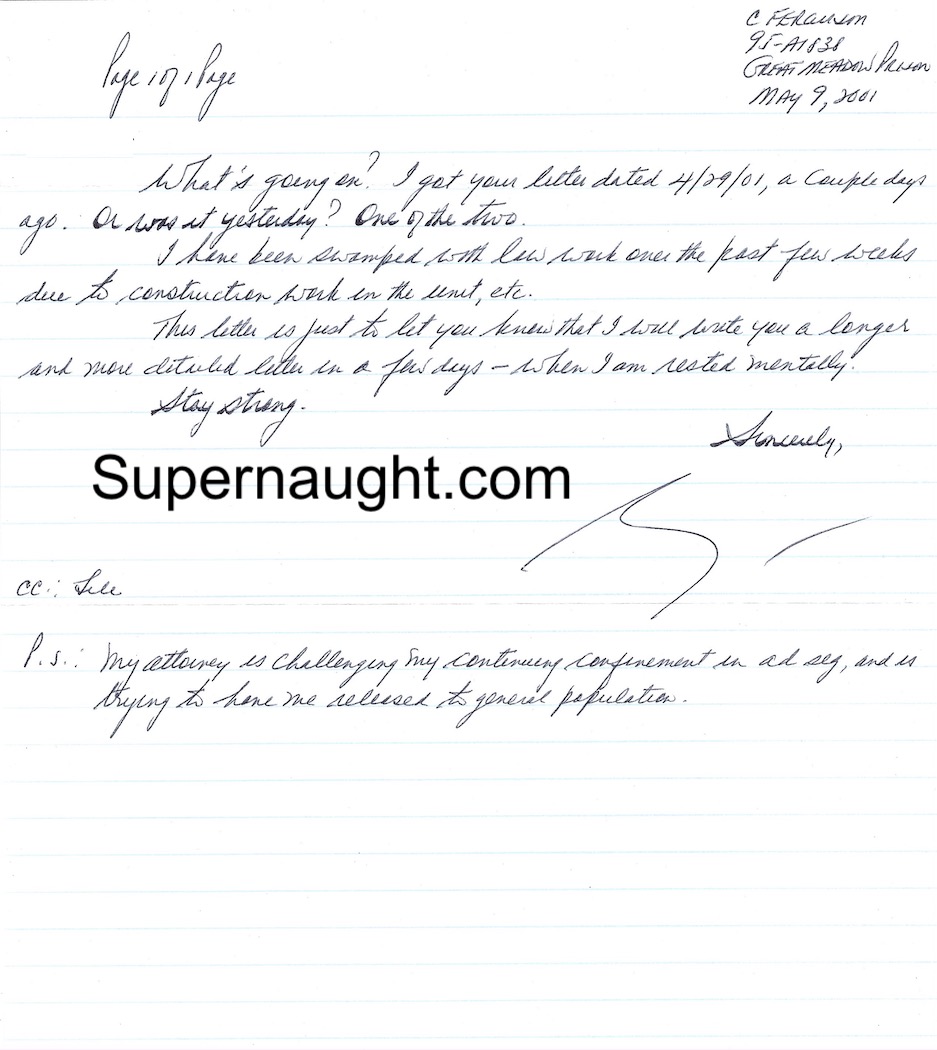 Page 1 of 1 Page
C FERGUSON
95-A1838
GREAT MEADOW PRISON
MAY 9, 2001
What's going on? I got your letter dated 4/29/01, a couple days
ago. Or was it yesterday? One of the two.
I have been swamped with law work over the past few weeks
due to construction work in the unit, etc.
This letter is just to let you know that I will write you a longer
and more detailed letter in a few days – when I am rested mentally.
Stay strong.
Sincerely,
Supernaught.com
cc: File
P.S.: My attorney is challenging my continuing confinement in ad seg, and is
trying to have me released to general population.